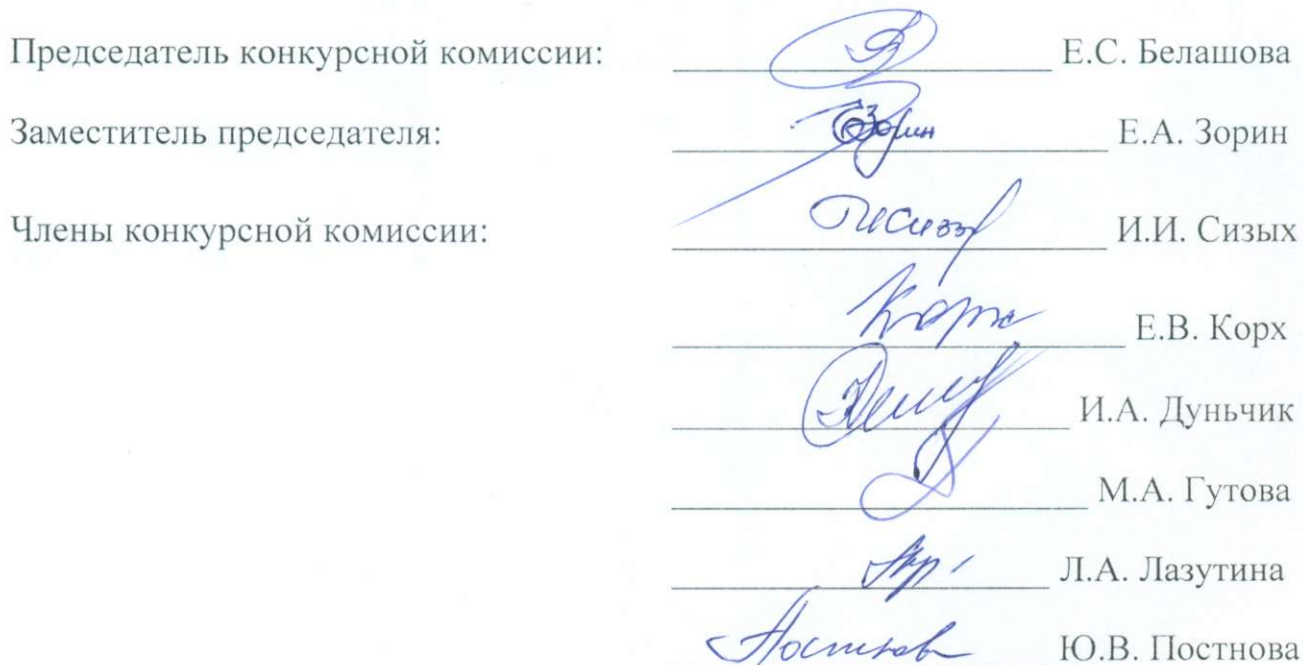 Председатель конкурсной комиссии: Е.С. Белашова
Заместитель председателя: Зорин Е.А. Зорин
Члены конкурсной комиссии: И.И. Сизых
Корх Е.В. Корх
И.А. Дуньчик
М.А. Гутова
Л.А. Лазутина
Ю.В. Постнова